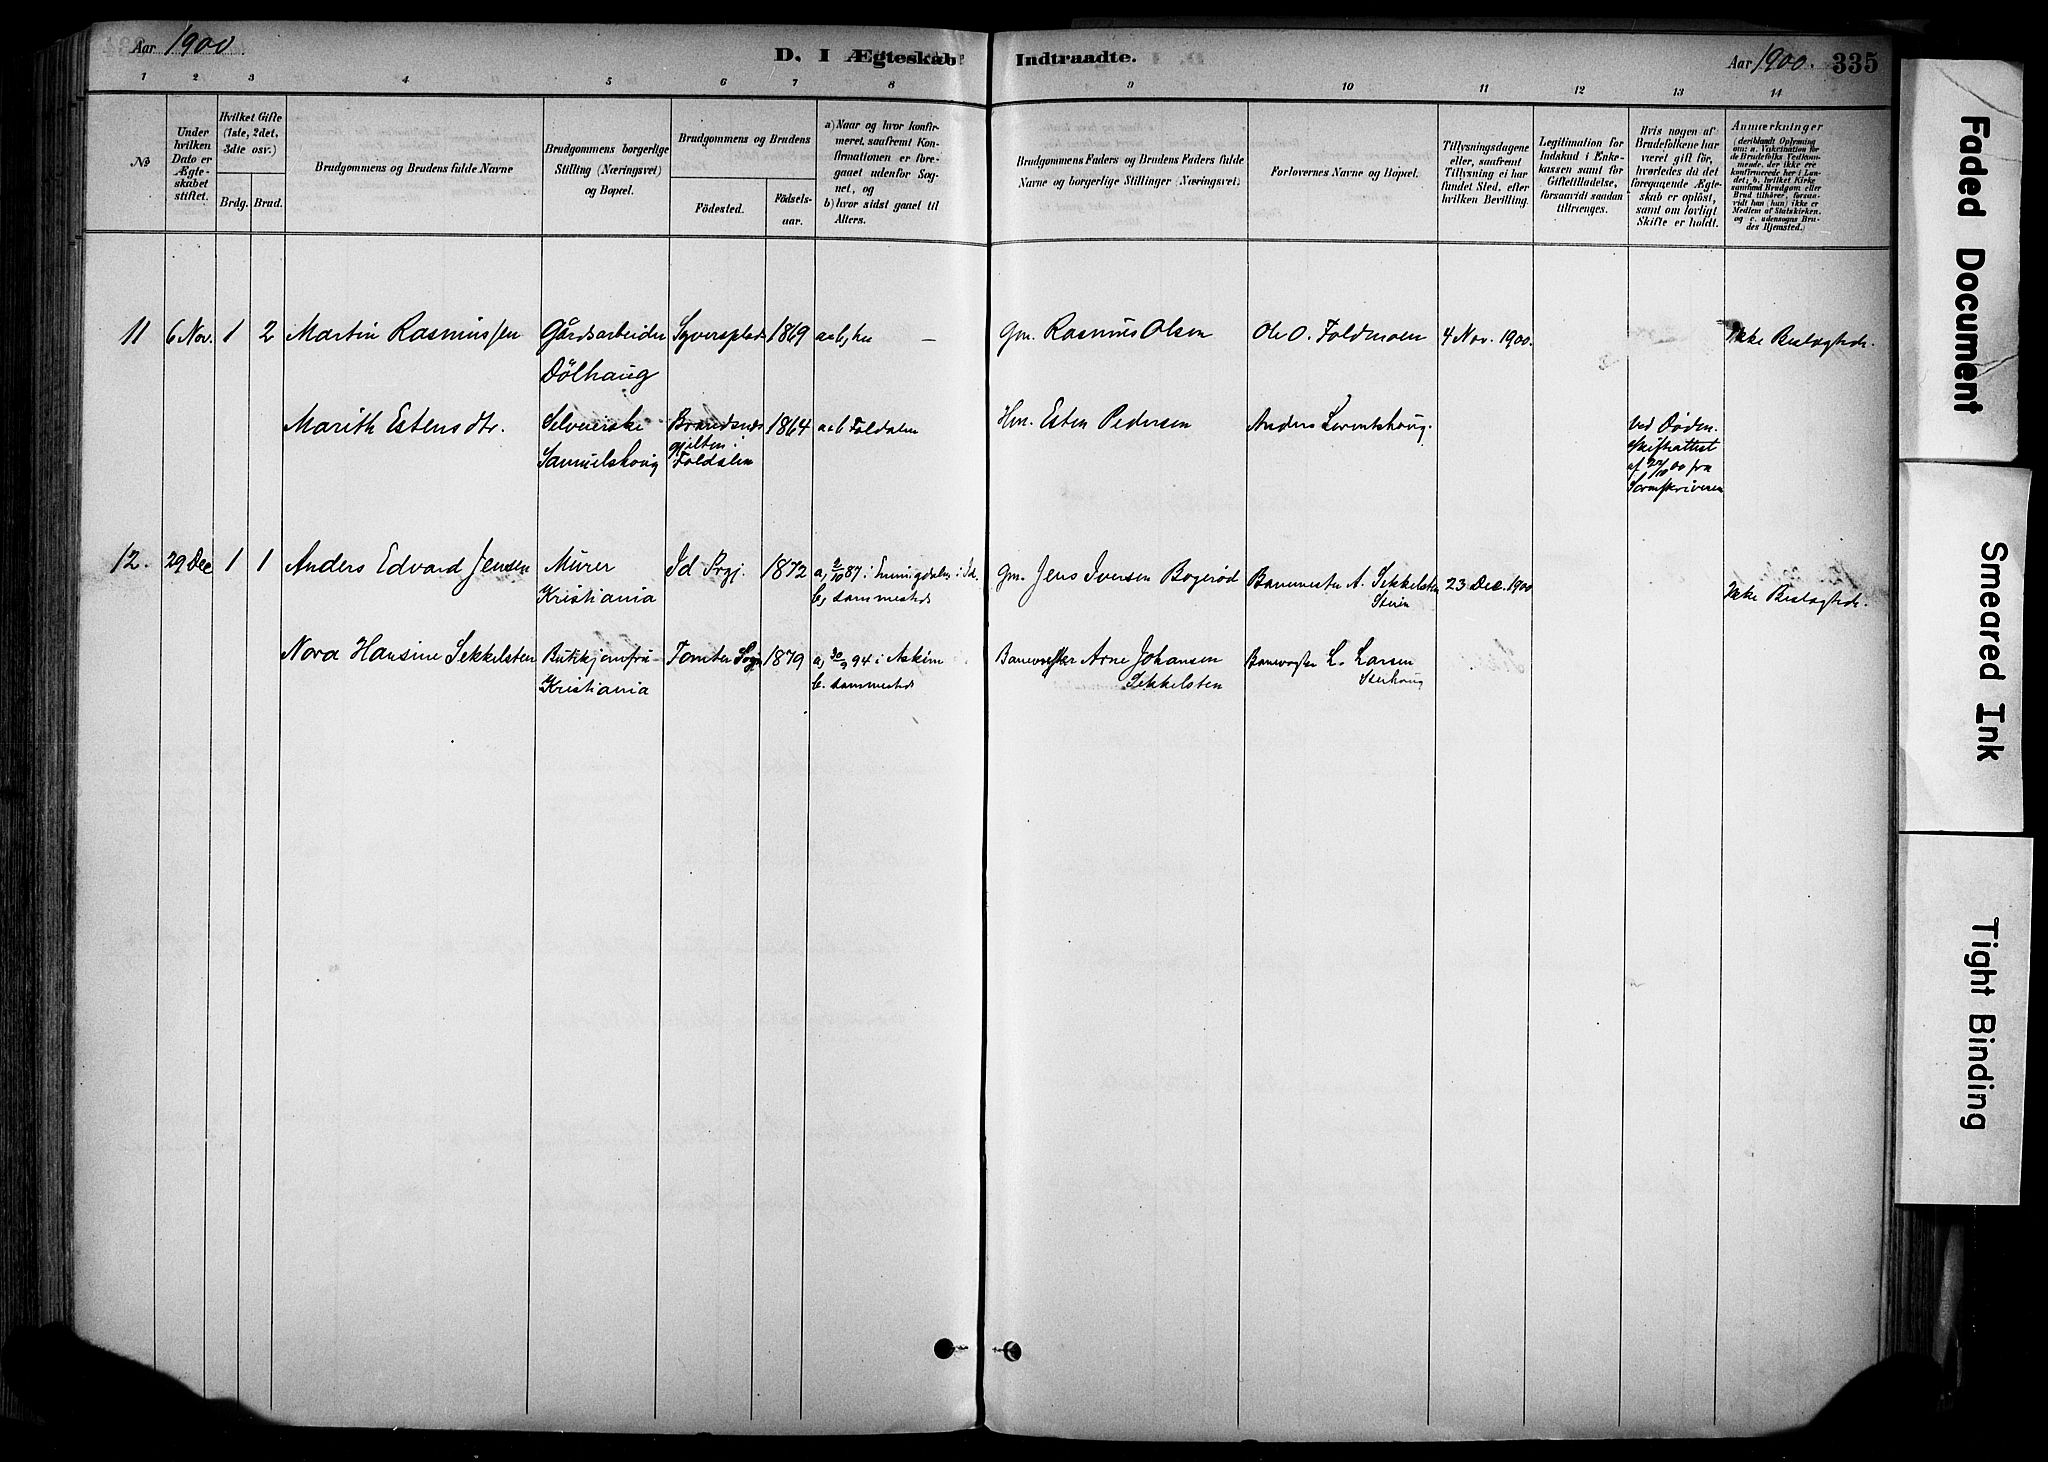 Aar 1900.
D. I Ægteskab
Indtraadte.
Aar 1900. 335
1 2 3 4 5 6 7 8 9 10 11 12 13 14
No
Under hvilken Dato er Ægteskabet stiftet.
Hvilket Gifte (1ste, 2det, 3die osv.)
Brdg. Brud.
Brudgommens og Brudens fulde Navne
Brudgommens borgerlige Stilling (Næringsvei) og Bopæl.
Brudgommens og Brudens
Födested.
Födselsaar.
a) Naar og hvor konfirmeret, saafremt Konfirmationen er foregaaet udenfor Sognet, og
b) hvor sidst gaaet til Alters.
Brudgommens Faders og Brudens Faders fulde Navne og borgerlige Stillinger (Næringsvei).
Forlovernes Navne og Bopæl.
Tillysningsdagene eller, saafremt Tillysning ei har fundet Sted, efter hvilken Bevilling.
Legitimation for Indskud i Enkekassen samt for Giftetilladelse, forsaavidt saadan tiltrænges.
Hvis nogen af Brudefolkene har været gift för, hvorledes da det foregaaende Ægteskab er oplöst, samt om lovligt Skifte er holdt.
Anmærkninger
(deriblandt Oplysning om: a. Vakcination for de Brudefolks Vedkommende, der ikke ere konfirmerede her i Landet; b. hvilket Kirkesamfund Brudgom eller Brud tilhörer, forsaavidt han (hun) ikke er Medlem af Statskirken, og c. udensogns Brudes Hjemsted.)
11 6 Nov. 1 2 Martin Rasmussen Gårdsarbeider Syversplads 1869 a&b, her — Gm. Rasmus Olsen Ole O. Foldmoen 4 Nov. 1900. Ikke Beslægtede.
Dölhaug
Marith Estensdtr. Selveierske 1864 a&b Foldalen Hm. Esten Pedersen Anders Lorentshoug. Ved Döden.
Samuelshoug Foldalen Skifteattest
af 27/10 00 fra
Sorenskriveren
12. 29 Dec 1 1 Anders Edvard Jensen Murer Id Prgj. 1872 a, 2/10 87 i Enningdalen i Id. Gm. Jens Iversen Bogeröd Banemester A. Sekkelsten 23 Dec. 1900 Ikke Beslægtede.
Kristiania b, sammesteds Steien
Nora Hansine Sekkelsten Butikjomfru Tomter Sogn 1879 a, 30/9 94 i Askim Banemester Arne Johansen Banevogter L. Larsen
Kristiania b. sammesteds Sekkelsten Steihoug
Faded Document
Smeared Ink
Tight Binding